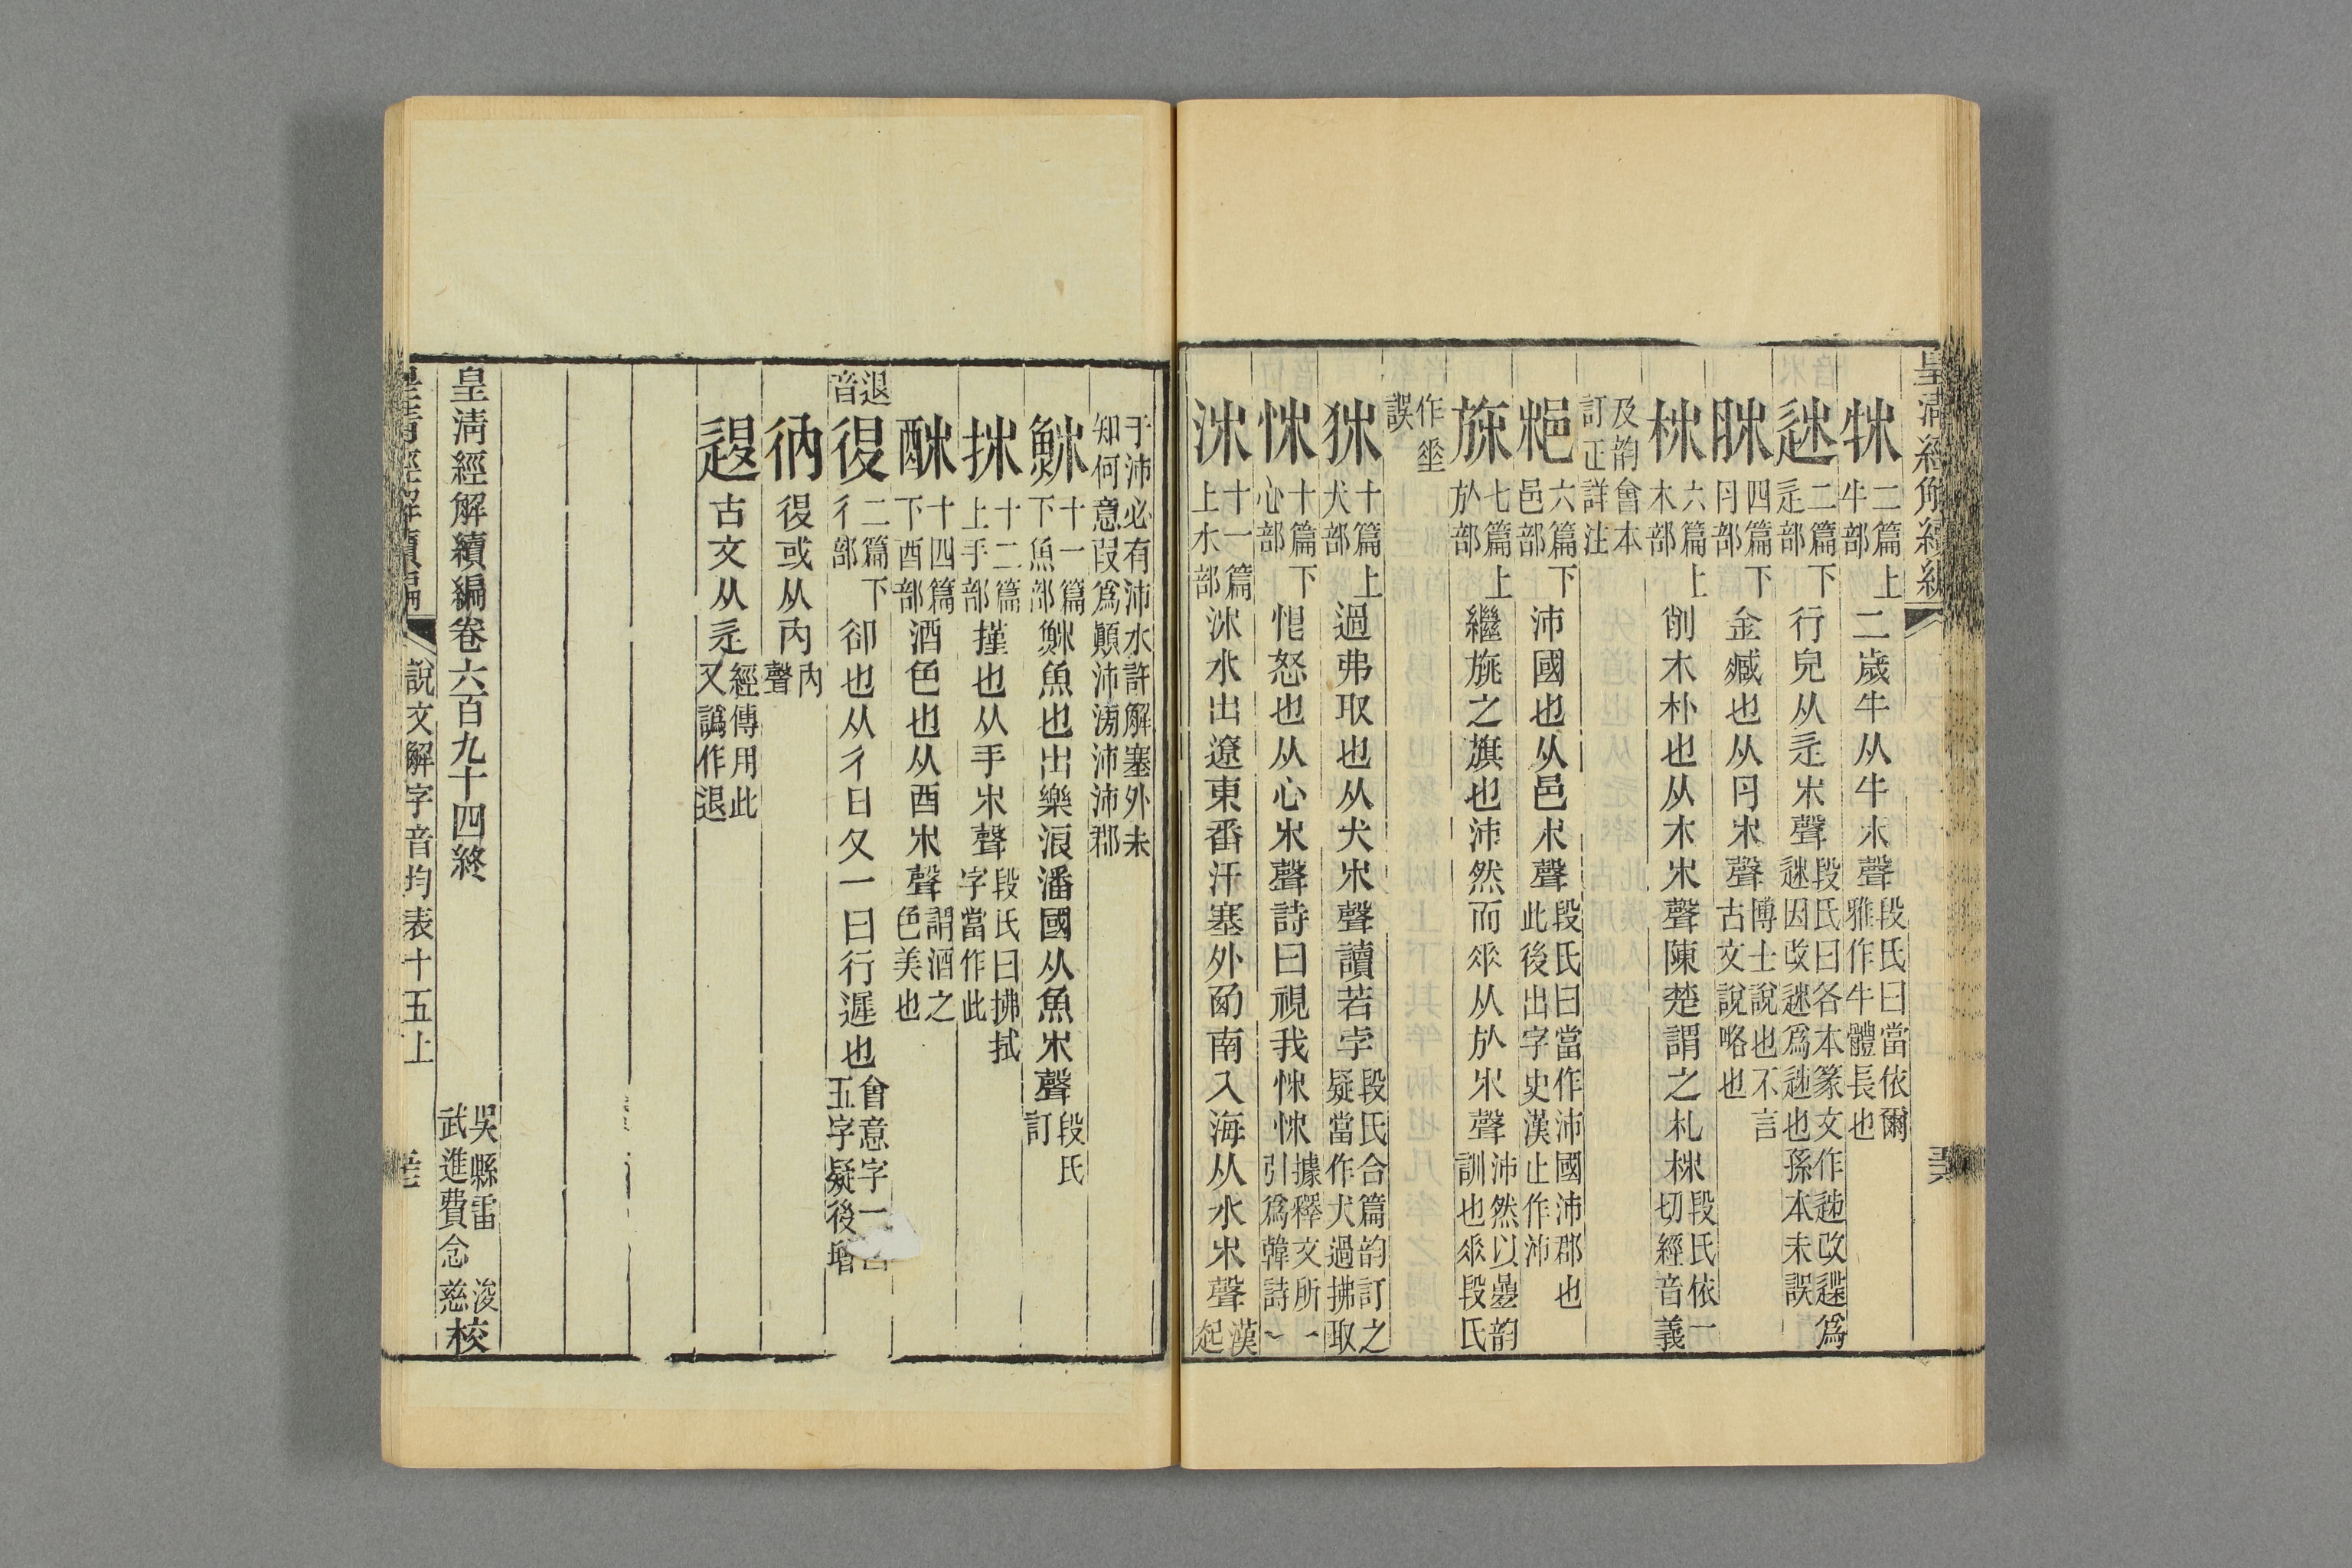 皇清經解續編
牬二篇上牛部二歲牛从牛巿聲段氏曰當依爾雅作牛體長也
䢌二篇下辵部行皃从辵巿聲段氏曰各本篆文作䢌改䢌爲䢌因改䢌爲䢌也孫本未誤
肺四篇下肉部金臧也从肉巿聲博士說也不言古文說略也
柿六篇上木部削木朴也从木巿聲陳楚謂之札柿段氏依一切經音義
及韵會本訂正詳注
𨚍六篇下邑部沛國也从邑巿聲段氏曰當作沛國沛郡也此後出字史漢止作沛
旆七篇上㫃部繼旐之旗也沛然而𠂹从㫃巿聲沛然以曡韵訓也𠂹段氏
作坙誤
㹃十篇上犬部過弗取也从犬巿聲讀若孛段氏合篇韵訂之疑當作犬過拂取
怖十篇下心部恨怒也从心巿聲詩曰視我怖怖據釋文所引爲韓詩
沛十一篇上水部沛水出遼東番汗塞外西南入海从水巿聲漢起
于沛必有沛水許解塞外未知何意叚爲顚沛滂沛沛郡
䰽十一篇下魚部䰽魚也出樂浪潘國从魚巿聲段氏訂
抪十二篇上手部㨷也从手巿聲段氏曰拂拭字當作此
㭭十四篇下酉部酒色也从酉巿聲謂酒之色美也
退音復二篇下彳部卻也从彳日夊一曰行遲也會意字一曰五字疑後增
㣆復或从內內聲
𨓤古文从辵經傳用此又譌作退
皇清經解續編卷六百九十四終
吳縣雷浚武進費念慈校
皇清經解續編 說文解字音均表十五上